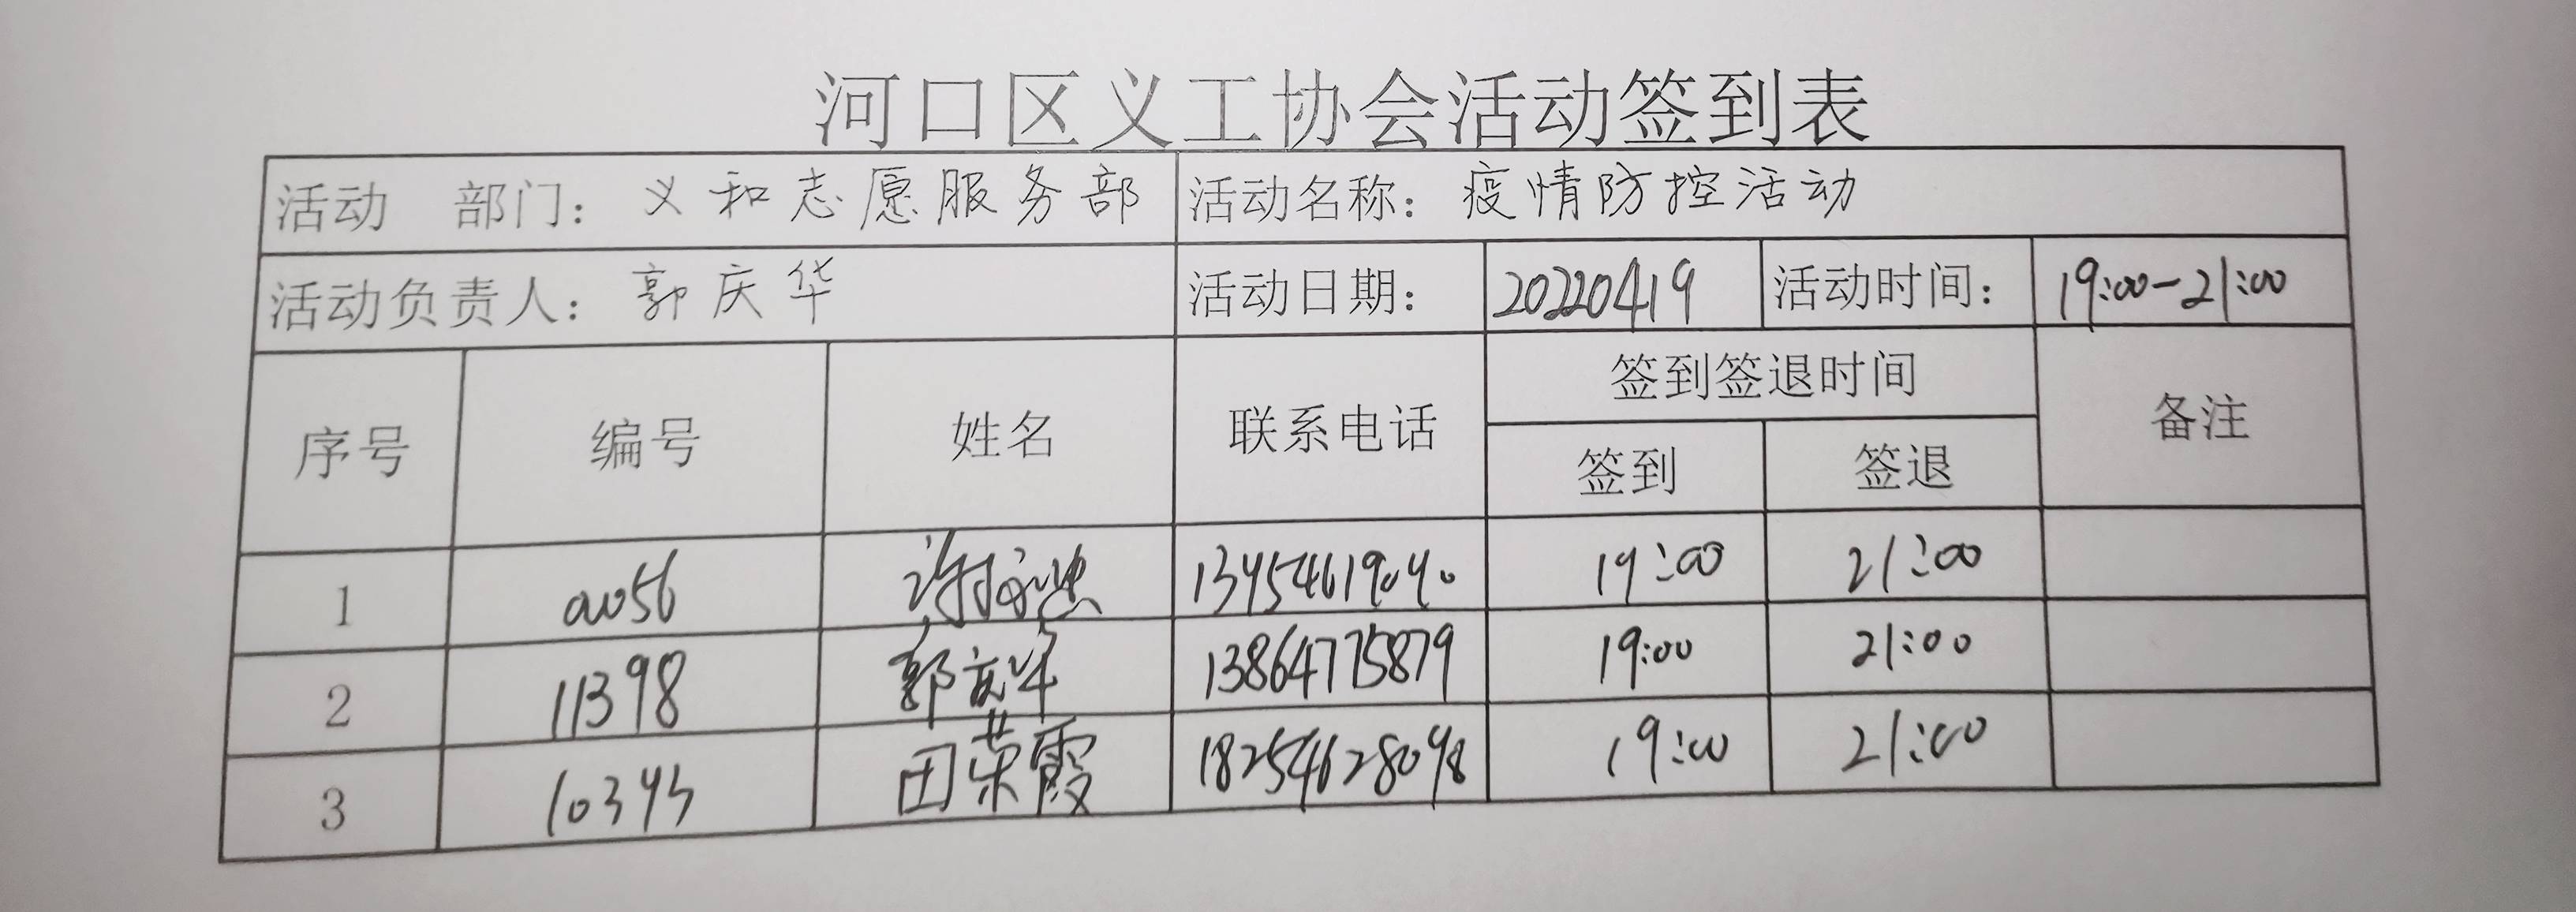 河口区义工协会活动签到表
活动 部门：义和志愿服务部 活动名称：疫情防控活动
活动负责人：郭庆华 活动日期： 20220419 活动时间： 19:00-21:00
序号 编号 姓名 联系电话 签到签退时间 备注
签到 签退
1 0056 13454619040 19:00 21:00
2 11398 郭庆华 13864775879 19:00 21:00
3 10343 田荣霞 18254628048 19:00 21:00